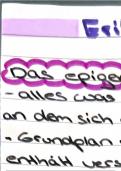 Eri
Das epige
- alles was
an dem sich
• Grundplan
enthält vers